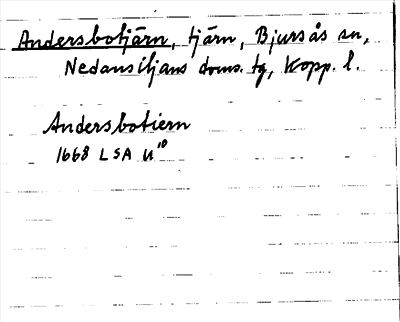 Andersbotjärn, tjärn, Bjursås sn,
Nedansiljans doms. tg, Kopp. l.
Andersbotiern
1668 LSA U¹⁰